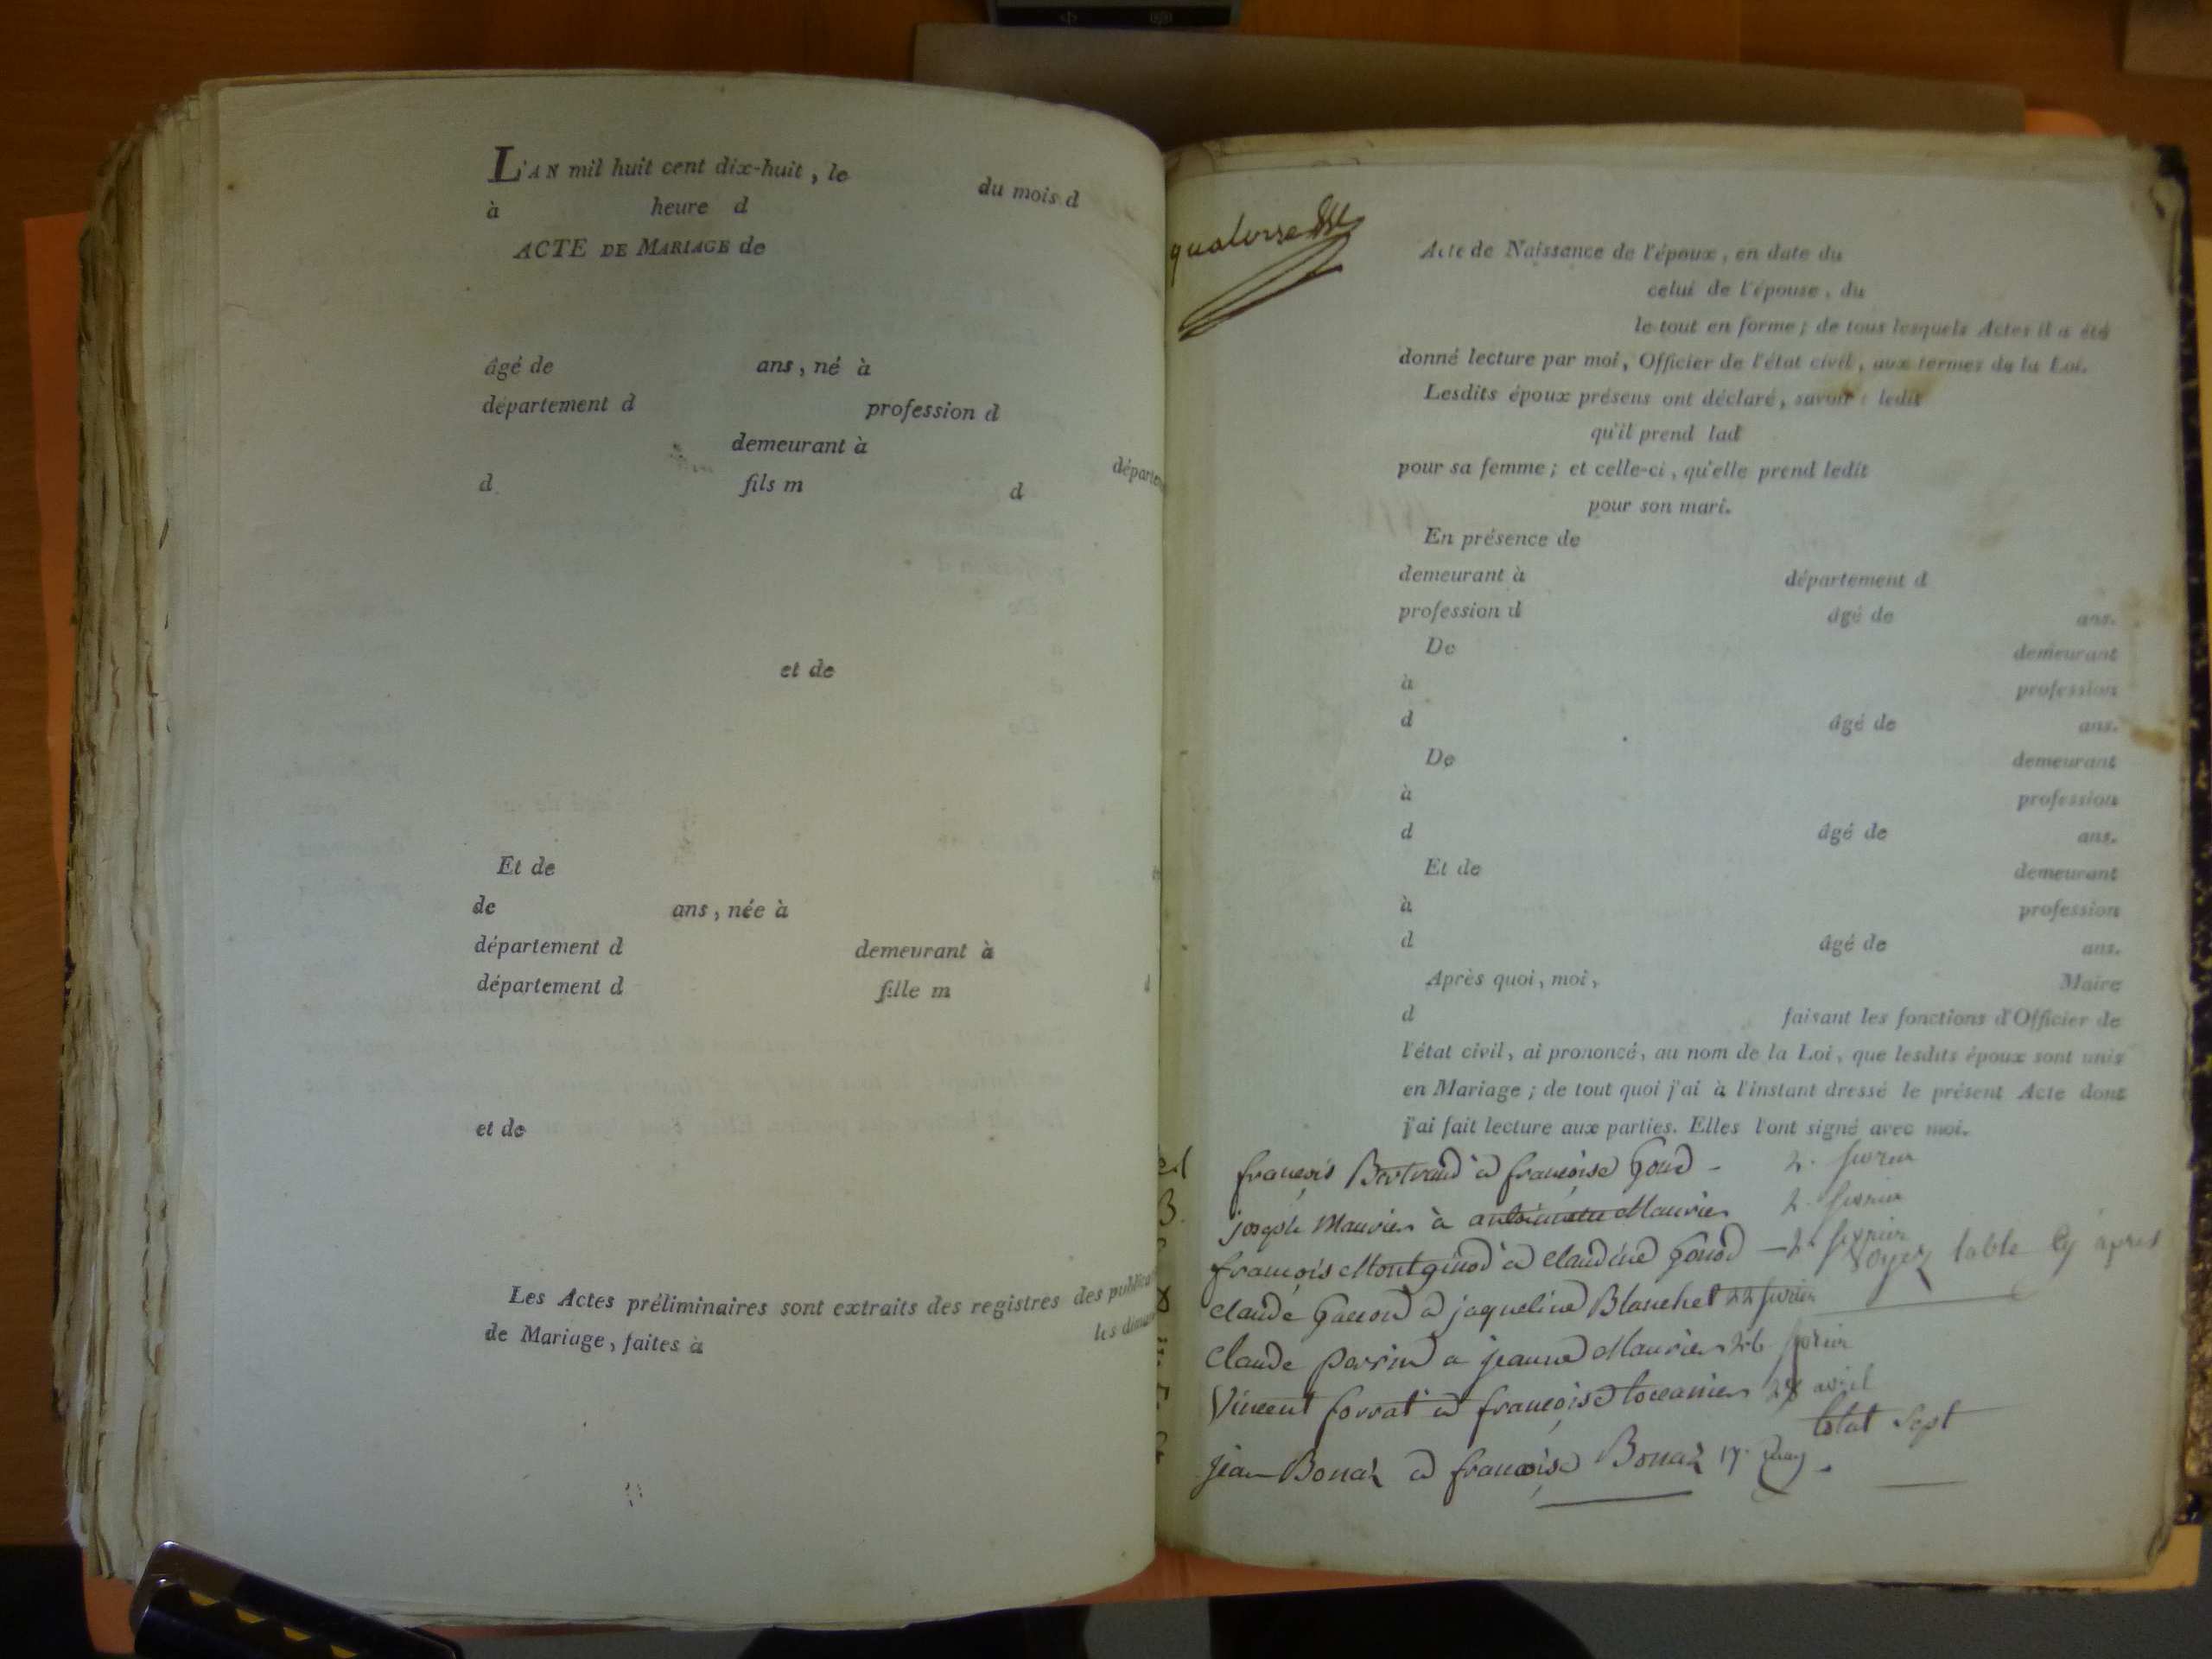 L'AN mil huit cent dix-huit, le du mois d
à heure d
ACTE DE MARIAGE de
âgé de ans, né à
département d profession d
demeurant à départem
d fils m d
et de
Et de
de ans, née à
département d demeurant à
département d fille m d
et de
Les Actes préliminaires sont extraits des registres des publica
de Mariage, faites à les diman
Acte de Naissance de l'époux, en date du
celui de l'épouse, du
le tout en forme; de tous lesquels Actes il a été
donné lecture par moi, Officier de l'état civil, aux termes de la Loi.
Lesdits époux présens ont déclaré, savoir: ledit
qu'il prend lad
pour sa femme; et celle-ci, qu'elle prend ledit
pour son mari.
En présence de
demeurant à département d
profession d âgé de ans.
De demeurant
à profession
d âgé de ans.
De demeurant
à profession
d âgé de ans.
Et de demeurant
à profession
d âgé de ans.
Après quoi, moi, Maire
d faisant les fonctions d'Officier de
l'état civil, ai prononcé, au nom de la Loi, que lesdits époux sont unis
en Mariage; de tout quoi j'ai à l'instant dressé le présent Acte dont
j'ai fait lecture aux parties. Elles l'ont signé avec moi.
françois Bertrand à françoise Goud - 2. fevrier
joseph Maurier à Maurier 2. fevrier
françois Montginod à claudine Gonod - 2. fevrier
Voyez table cy après
claude à jaqueline Blanchet 22 fevrier
Claude Perrin a jeanne Maurier 26 fevrier
Vincent forrat à françoise 28 avril
total sept
jean Bonaz à françoise Bonaz 17. may.